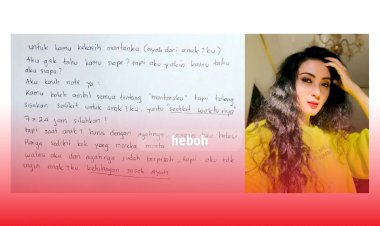 untuk kamu kekasih mantanku (ayah dari anak²ku)
Aku gak tahu kamu siapa? tapi aku yakin kamu tahu
aku siapa?
Aku kasih note ya :
Kamu boleh ambil semua tentang "mantanku" tapi tolong
sisakan sedikit untuk anak²ku, yaitu sedikit waktunya
7x24 jam silahkan!
tapi saat anak² harus dengan ayahnya
hanya sedikit kok yang mereka minta
heboh
walau aku dan ayahnya sudah berpisah, tapi aku tak
ingin anak²ku kehilangan sosok ayah